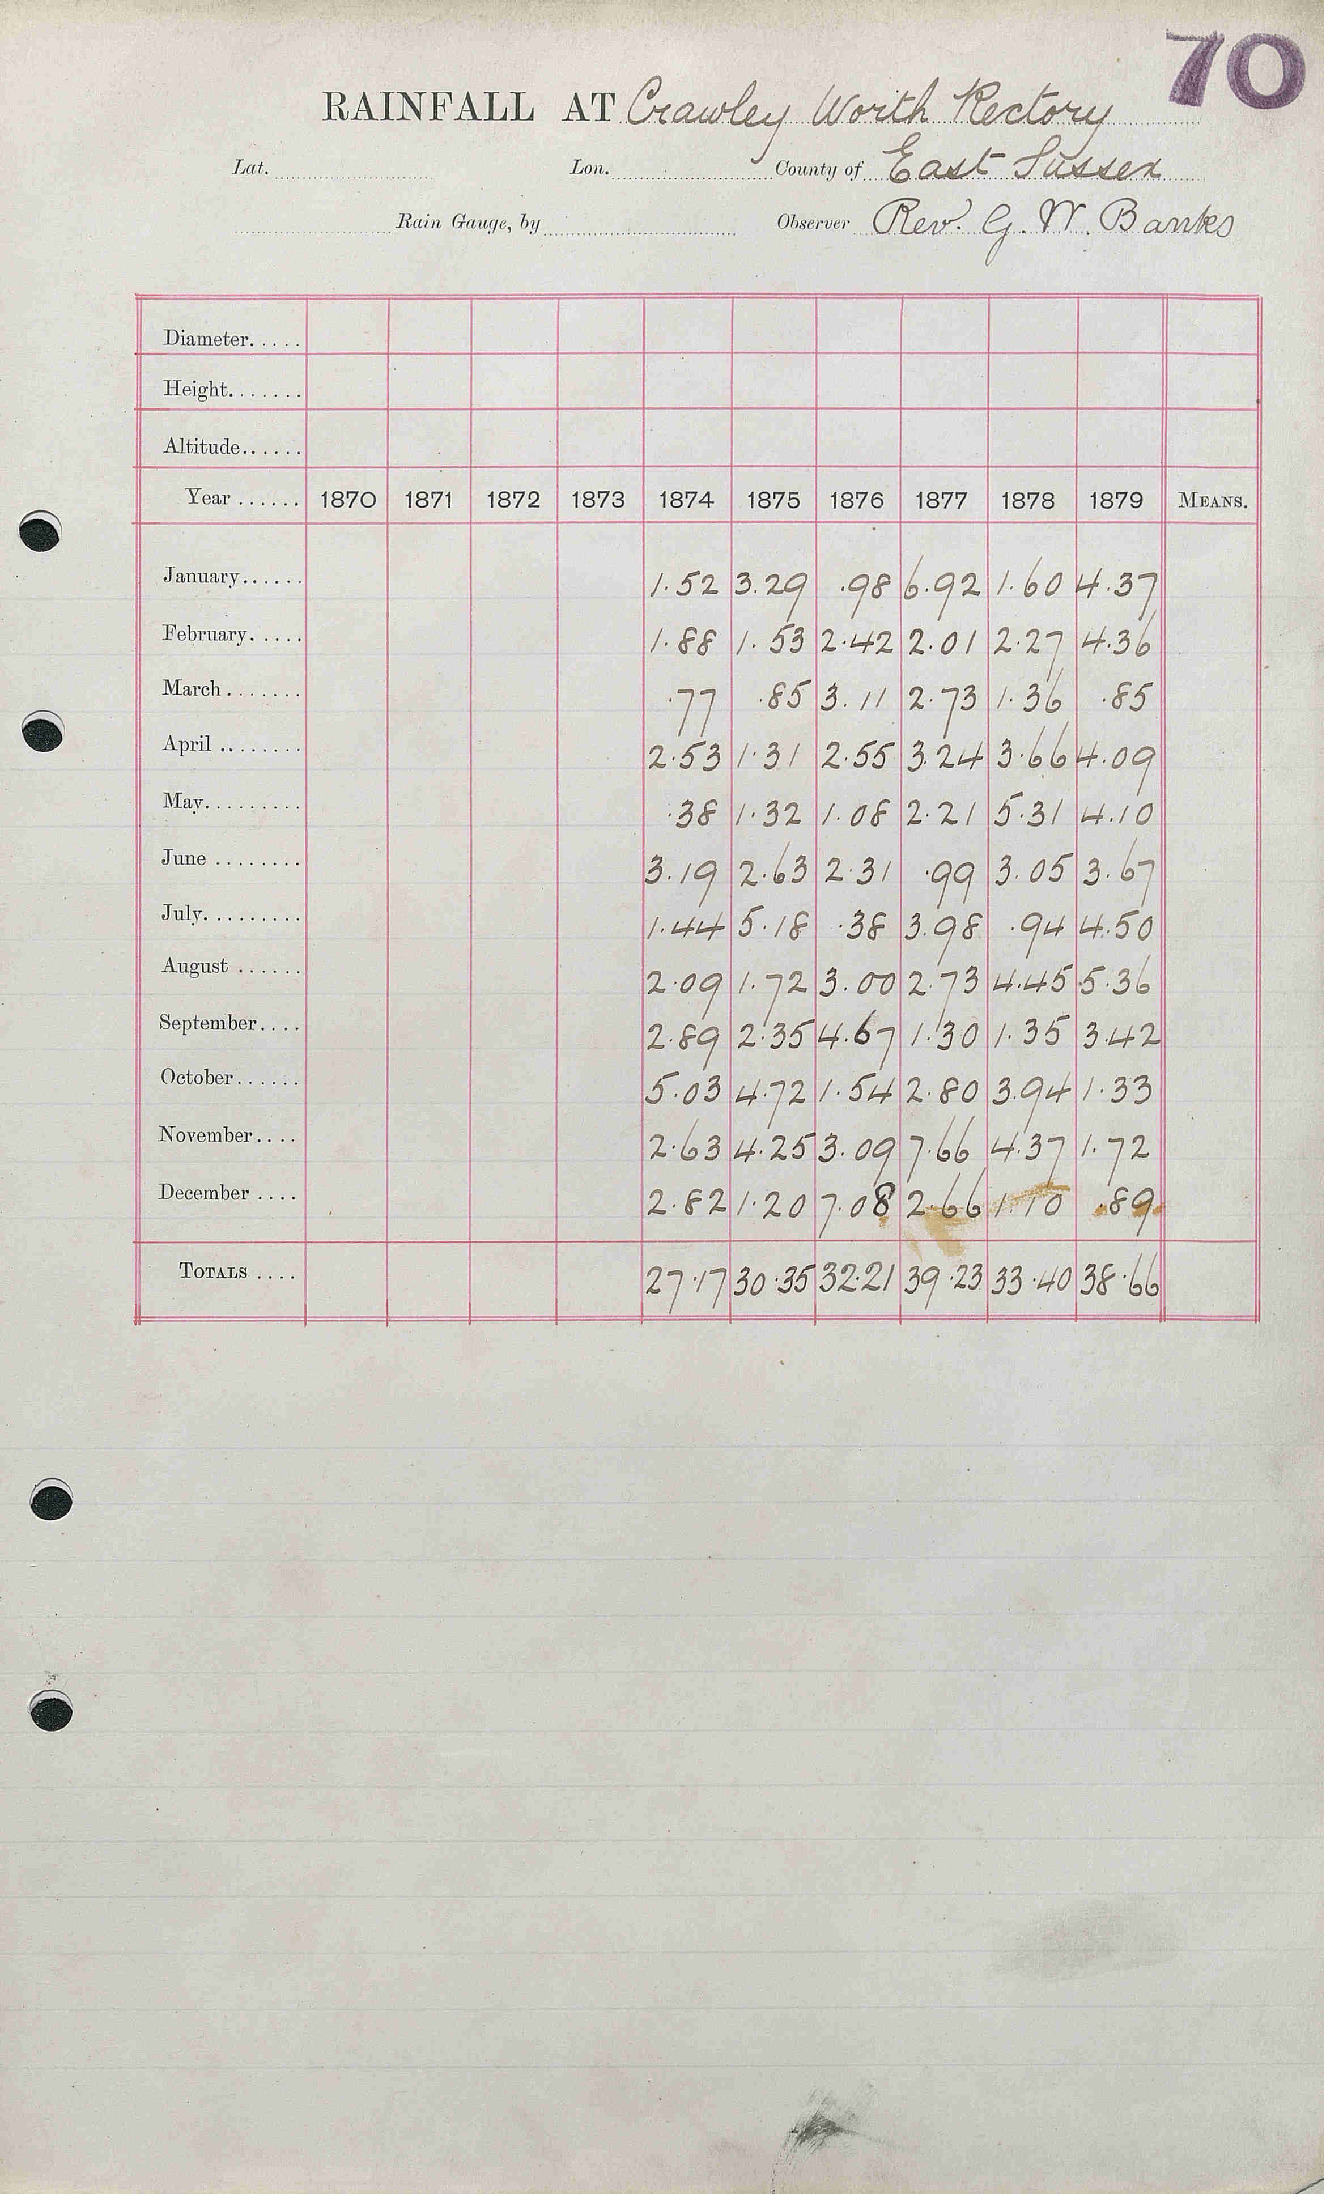 70
RAINFALL AT Crawley Worth Rectory
Lat. Lon. County of East Sussex
Rain Gauge, by Observer Rev. G. W. Banks
Diameter.....
Height.......
Altitude......
Year ...... 1870 1871 1872 1873 1874 1875 1876 1877 1878 1879 MEANS.
January...... 1.52 3.29 .98 6.92 1.60 4.37
February..... 1.88 1.53 2.42 2.01 2.27 4.36
March....... .77 .85 3.11 2.73 1.36 .85
April ........ 2.53 1.31 2.55 3.24 3.66 4.09
May......... .38 1.32 1.08 2.21 5.31 4.10
June ........ 3.19 2.63 2.31 .99 3.05 3.67
July......... 1.44 5.18 .38 3.98 .94 4.50
August ...... 2.09 1.72 3.00 2.73 4.45 5.36
September.... 2.89 2.35 4.67 1.30 1.35 3.42
October...... 5.03 4.72 1.54 2.80 3.94 1.33
November.... 2.63 4.25 3.09 7.66 4.37 1.72
December .... 2.82 1.20 7.08 2.66 1.10 .89
TOTALS .... 27.17 30.35 32.21 39.23 33.40 38.66